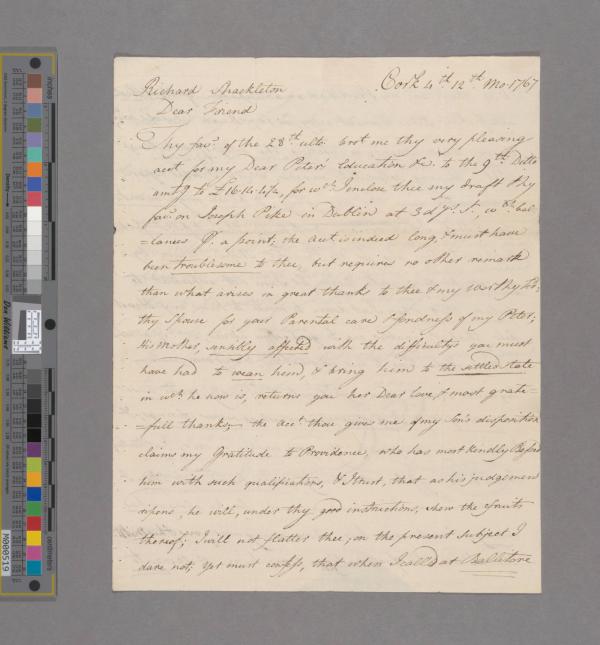 Cork 4th 12th Mo. 1767
Richard Shackleton
Dear Friend
Thy favr. of the 28th ulto. brot me thy very pleasing
acot for my Dear Peters Education &c. to the 9th Ditto
amtg to £16:14:, for wch. I inclose thee my draft P. my
favr. on Joseph Pike in Dublin at 3 d/s St. wch. bal=
=lances P. a point; the acct is indeed long, & must have
been troublesome to thee, but requires no other remark
than what arises in great thanks to thee & my worthy
thy Spouse for your Parental care & fondness of my Peter;
His Mother, sensibly affected with the difficultys you must
have had to wean him, & bring him to the settled state
in wch. he now is, returns you her Dear Love, & most grate=
=full thanks; the acct. thou gives me of my Son's disposition
claims my Gratitude to Providence, who has most kindly
him with such qualifications, & I trust, that as his judgement
ripens, he will, under thy good instructions, shew the fruits
thereof; I will not flatter thee, on the present subject I
dare not; yet must confess, that when I called at Balitore
inches
centimeters
Don Williams
M000519